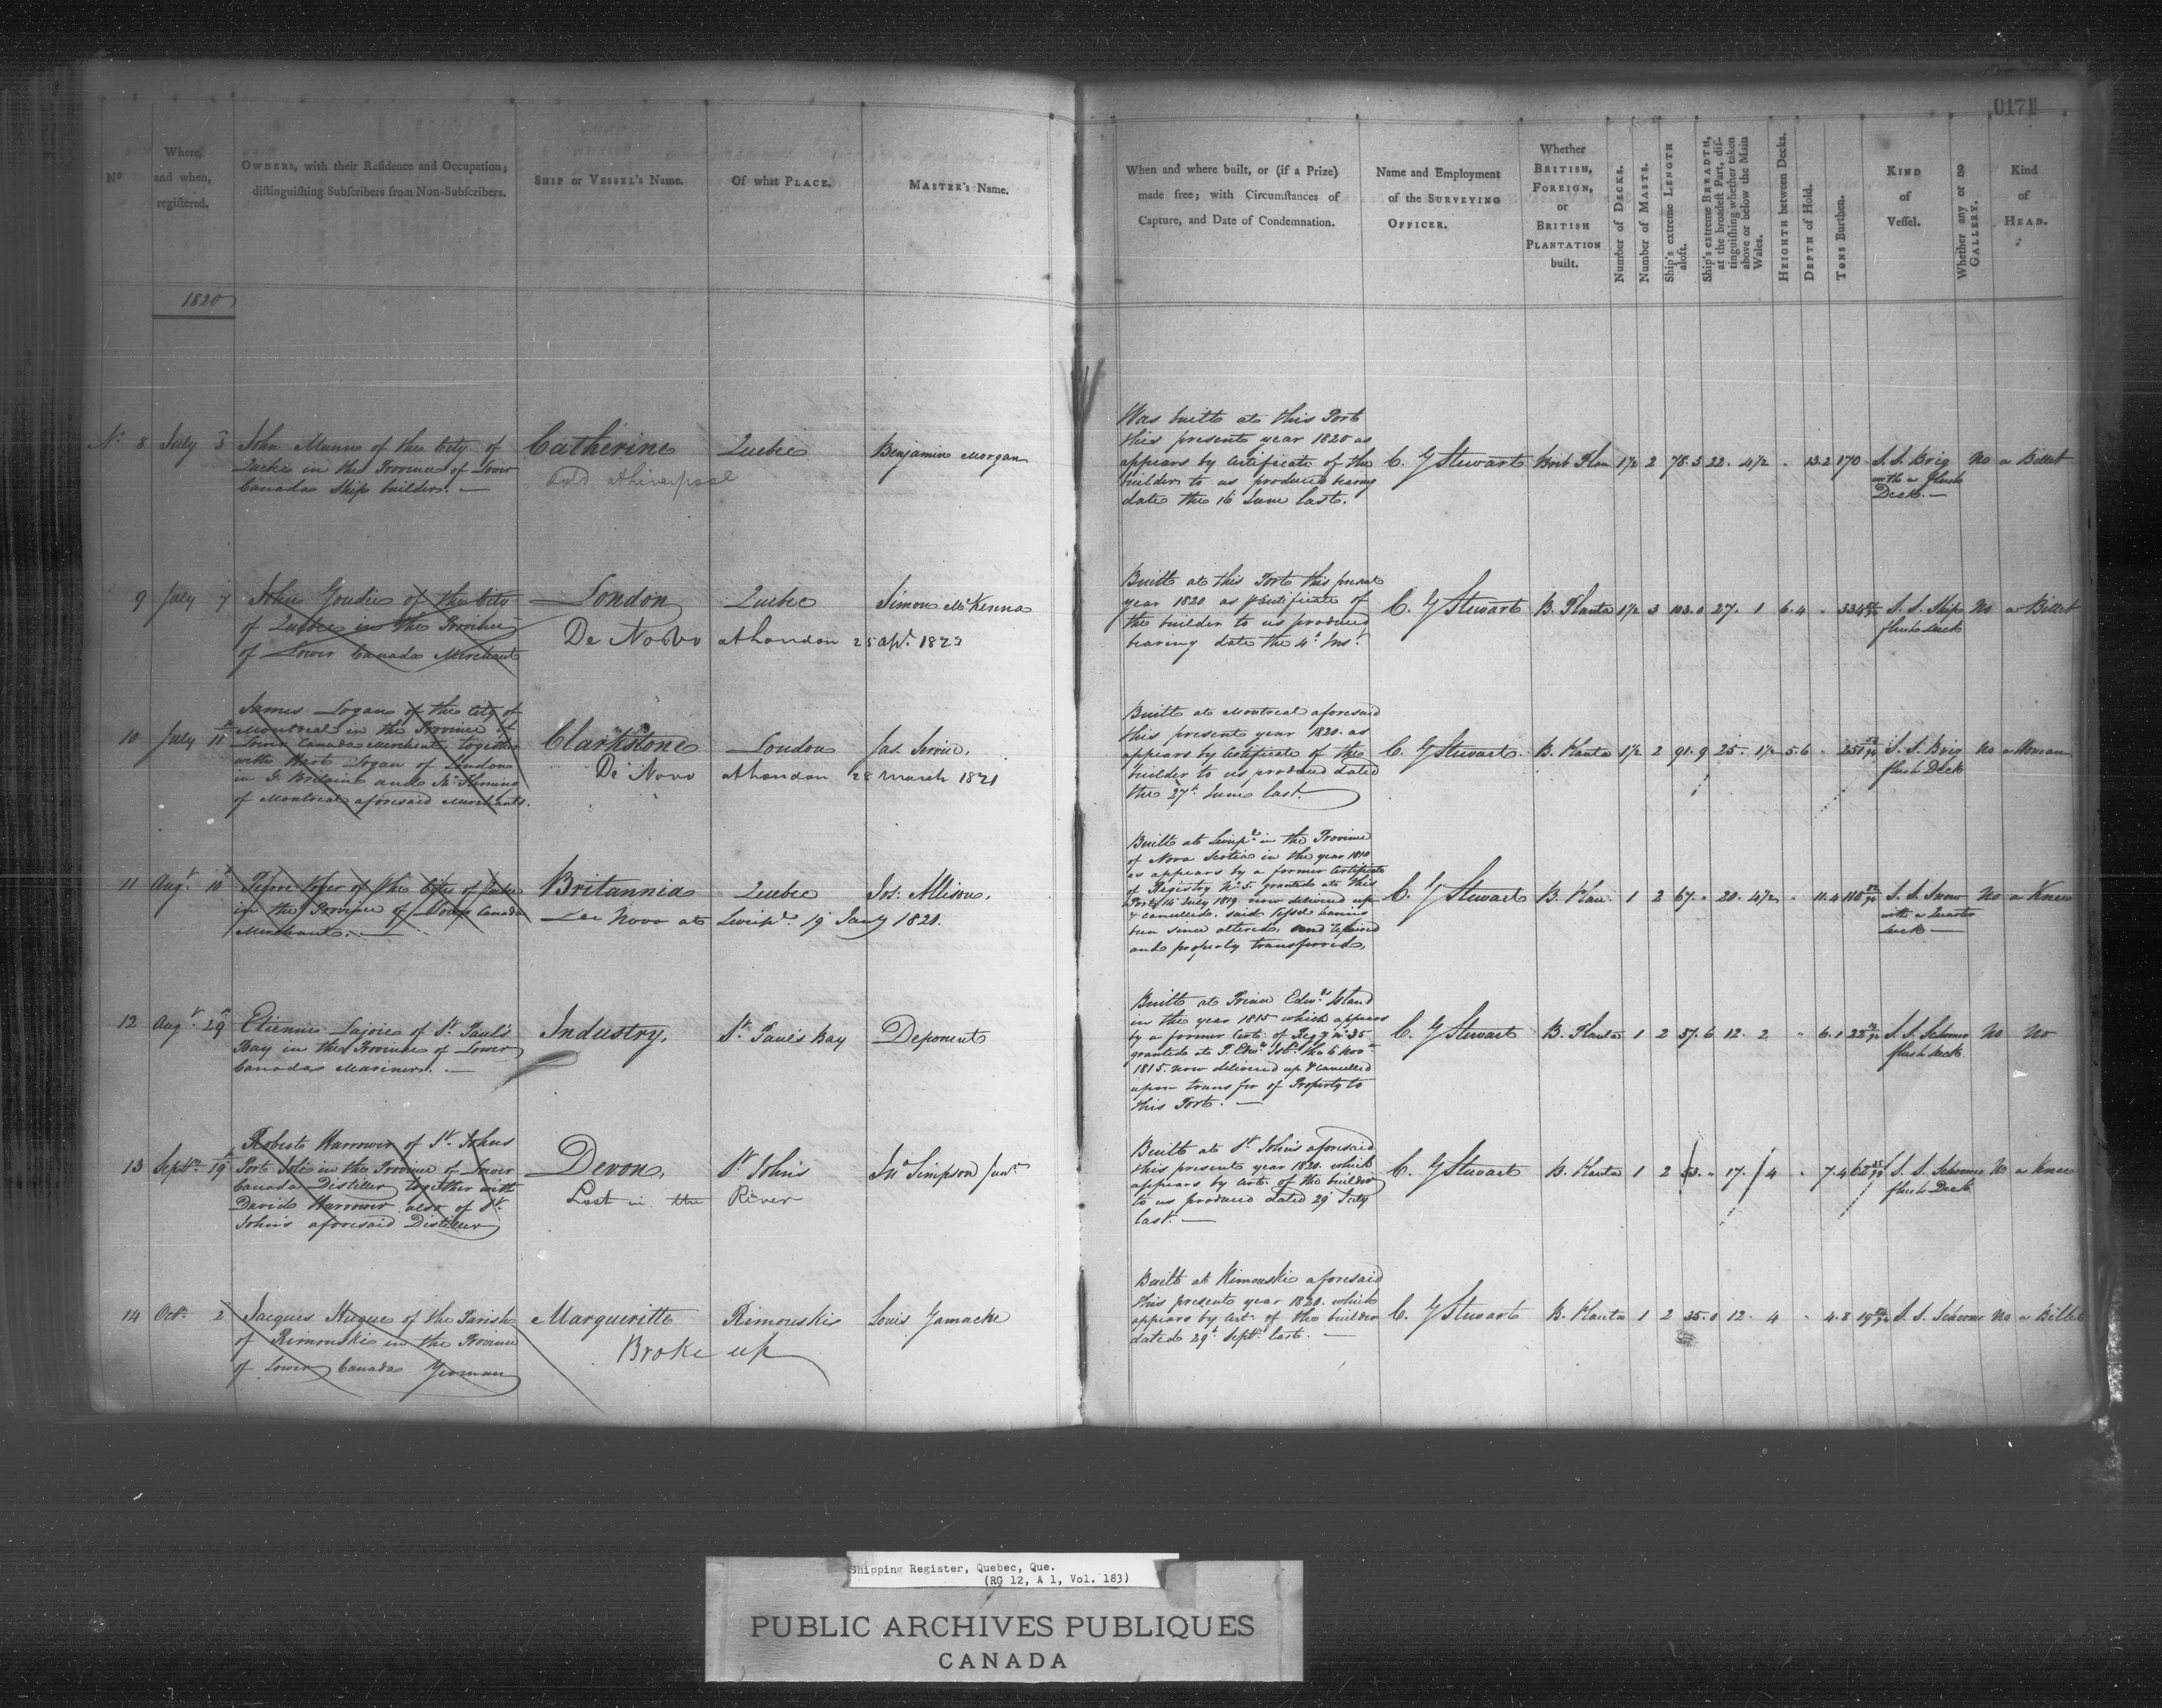 0171
Nº
Where,
and when,
registered.
OWNERS, with their Residence and Occupation;
distinguishing Subscribers from Non-Subscribers.
SHIP or VESSEL's Name.
Of what PLACE.
MASTER's Name.
When and where built, or (if a Prize)
made free; with Circumstances of
Capture, and Date of Condemnation.
Name and Employment
of the SURVEYING
OFFICER.
Whether
BRITISH,
FOREIGN,
or
BRITISH
PLANTATION
built.
Number of DECKS.
Number of MASTS.
Ship's extreme LENGTH
aloft.
Ship's extreme BREADTH,
at the broadest Part, dis-
tinguishing whether taken
above or below the Main
Wales.
HEIGHTH between Decks.
DEPTH of Hold.
TONS Burthen.
KIND
of
Vessel.
Whether any or no
GALLERY.
Kind
of
HEAD.
1820
Nº 8 July 3
John Munn of the City of
Quebec in the Province of Lower
Canada Ship builder. —
Catherine
Sold at Liverpool
Quebec
Benjamin Morgan
Was built at this Port
this present year 1820 as
appears by Certificate of the
builder to us produced bearing
date the 16 June last.
C. G Stewart Brit Plan 1½ 2 78.3 22. 4½ " 13.2 170 S. S. Brig no a Billet
with a flush
Deck. —
9 July 7
John Goudie of the City
of Quebec in the Province
of Lower Canada Merchant
London
De Novo at London 25 apl. 1823
Quebec
Simon McKenna
Built at this Port this present
year 1820 as p Certificate of
the builder to us produced
bearing date the 4th Inst.
C. G Stewart B. Planta 1½ 3 103.0 27. 1 6.4 " 334 S. S. Ship no a Billet
flush deck
10 July 11
James Logan of the City of
Montreal in the Province of
Lower Canada Merchant, together
with Hart Logan of London
in G. Britain and
of Montreal aforesaid Merchants.
Clarkstone
De Novo at London 28 March 1821
London
Jas. Servise.
Built at Montreal aforesaid
this present year 1820. as
appears by Certificate of the
builder to us produced dated
the 27th June last.
C. G Stewart. B. Planta 1½ 2 91.9 25. 1½ 5.6 " S. S. Brig no a Woman
flush Deck
11 Augt. 10
of the City of Quebec
in the Province of Lower Canada
Merchant. —
Britannia
De Novo at Liverpl. 19 Jany 1821.
Quebec
Jos: Allison.
Built at Liverpl. in the Province
of Nova Scotia in the year 1810
as appears by a former Certificate
of Registry No. 5. granted at this
Port 14 July 1819. now delivered up
& cancelled. said Vessel having
been since altered, and repaired
and property transferred.
C. G Stewart B. Plan. 1 2 67. " 20. 4½ " 11.4 S. S. Snow no a Knee
with a Quarter
deck —
12 Augt. 29
Etienne Lajoie of St. Paul's
Bay in the Province of Lower
Canada Mariner. —
Industry,
St. Paul's Bay
Deponent
Built at Prince Edwds. Island
in the year 1815 which appears
by a former Cert: of Regy No. 35
granted at P. Edwd. Isld. the 6 Novr
1815. now delivered up & cancelled
upon transfer of Property to
this Port. —
C. G Stewart B. Planta 1 2 37.6 12. 2 " 6.1 S. S. Schooner no no
flush deck
13 Septr. 19
Robert Harrower of St. Johns
Port Joli in the Province of Lower
Canada Distiller together with
David Harrower also of St.
John's aforesaid Distiller
Devon,
Lost in the River
St. John's
Jno. Simpson Junr
Built at St. Johns aforesaid
this present year 1820. which
appears by Cert: of the builder
to us produced dated 29 July
last. —
C. G Stewart B. Planta 1 2 53. " 17. 4 " 7.4 S. S. Schooner no a Knee
flush Deck
14 Octr. 2
Jacques Hugue of the Parish
of Rimouski in the Province
of Lower Canada Yeoman
Margueritte
Broke up
Rimouski
Louis Gamache
Built at Rimouski aforesaid
this present year 1820. which
appears by Cert. of the builder
dated 29th Septr. last. —
C. G Stewart B. Planta 1 2 35.0 12. 4 " 4.8 S. S. Schooner no a Billet
Shipping Register, Quebec, Que.
(RG 12, A 1, Vol. 183)
PUBLIC ARCHIVES PUBLIQUES
CANADA